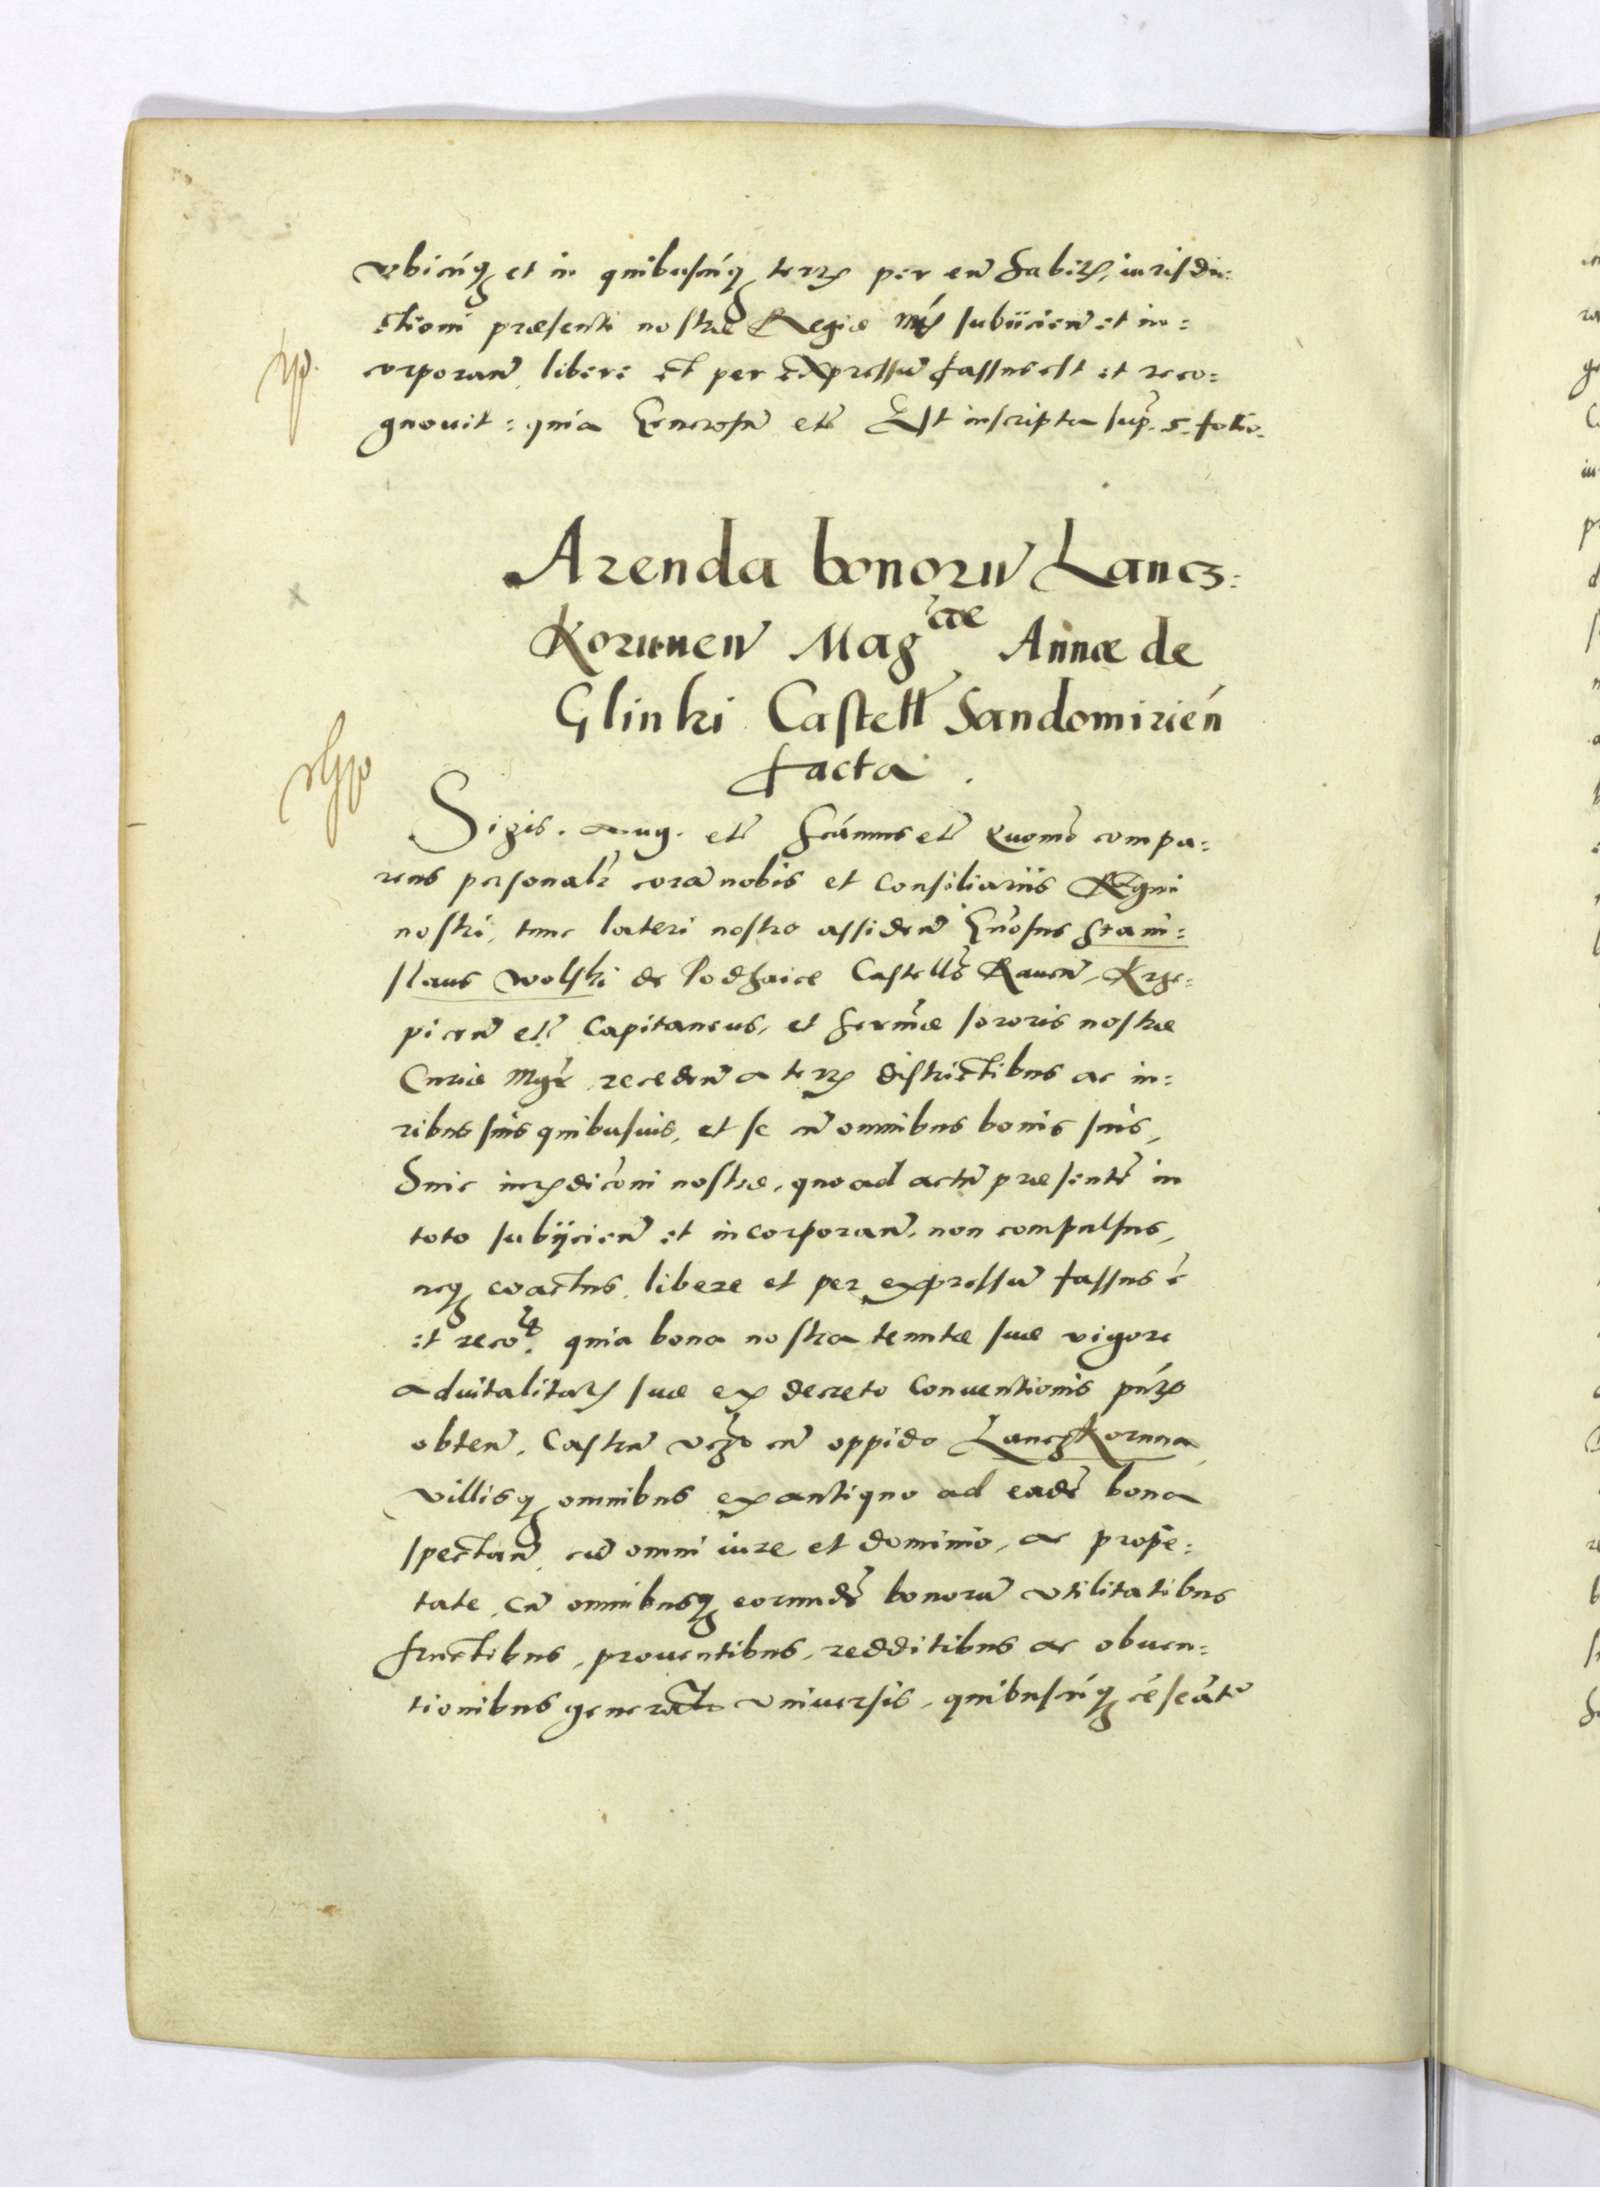 vbicuq et in quibuscuq terris per eu habitis, iurisdi:
ctioni præsenti nostræ Regiæ Mtis subiicien et in:
corporan, libere et per expressu fassus est et reco:
gnouit: quia Generosu etc Est inscripta sup. 5. folio.
Arenda bonoru Lancz:
Korunen Magcae Annæ de
Glinki Castell Sandomirien
facta.
Sigis. Aug. etc Scimus etc Quomo compa:
rens personalr cora nobis et Consiliariis Regni
nostri, tunc lateri nostro assiden Gnosus Stani:
slaus Wolski de Podhaice Castells Rauen, Krze:
picen etc Capitaneus, et Sermæ sororis nostræ
Curiæ Mgr receden a terris districtibus ac iu:
ribus suis quibusuis, et se cu omnibus bonis suis,
huic iurisdiconi nostræ, quo ad actu præsente in
toto subiicien et incorporan, non compulsus,
neq coactus, libere et per expressu fassus e
et reco. quia bona nostra tenutæ suæ vigore
aduitalitatis suæ ex decreto Conuentionis pntis
obten, Castru cu oppido LanczKoruna,
villisq omnibus ex antiquo ad eade bona
spectan, cu omni iure et dominio, ac propie:
tate, cu omnibusq eorunde bonoru vtilitatibus
fructibus, prouentibus, redditibus ac obuen:
tionibus generalr vniuersis, quibuscuq ceseatr